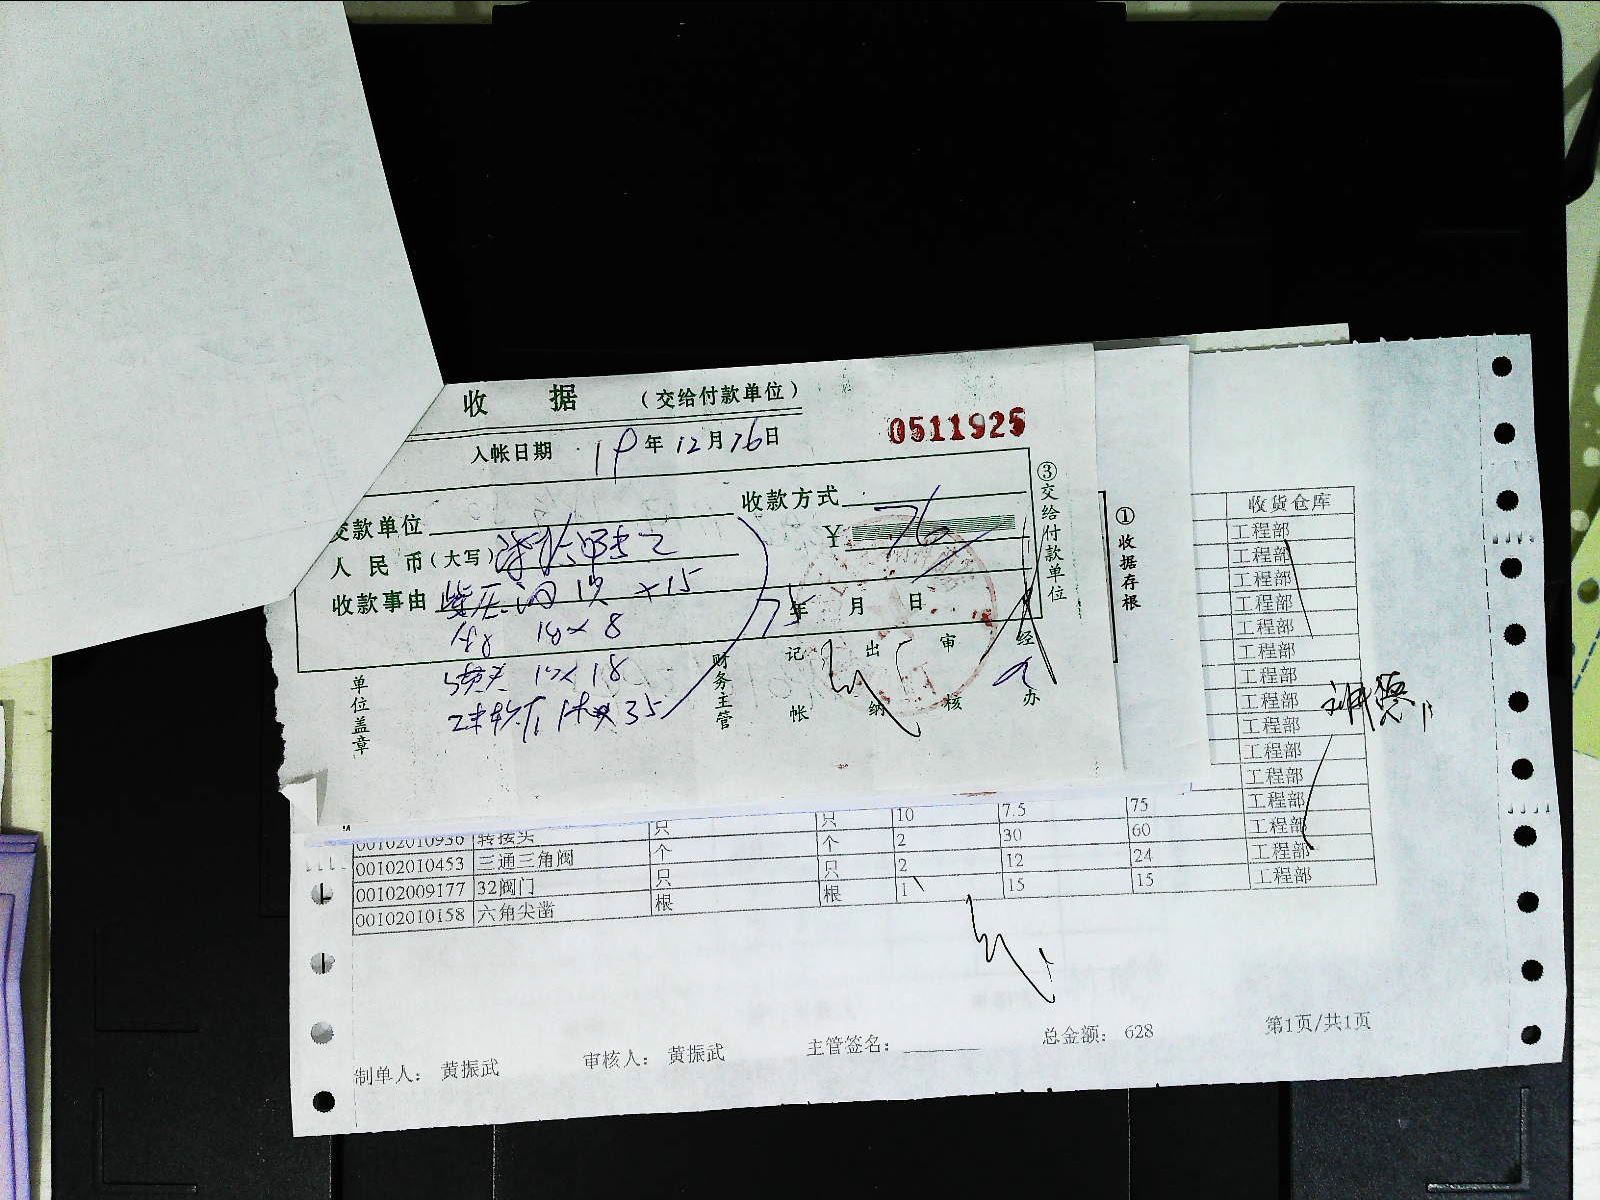 收 据 （交给付款单位）
0511925
入帐日期 19年12月26日
收款方式
交款单位
人民币(大写)
￥ 76
收款事由 ×15
年 月 日
18×8
18
35
75
单位盖章
财务主管
记帐
出纳
审核
经办
③交给付款单位
①收据存根
收货仓库
工程部
工程部
工程部
工程部
工程部
工程部
工程部
工程部
工程部
工程部
工程部
工程部
工程部
工程部
工程部
00102010936 转接头 只 只 10 7.5 75
00102010453 三通三角阀 个 个 2 30 60
00102009177 32阀门 只 只 2 12 24
00102010158 六角尖凿 根 根 1 15 15
制单人： 黄振武 审核人： 黄振武 主管签名： 总金额： 628 第1页/共1页